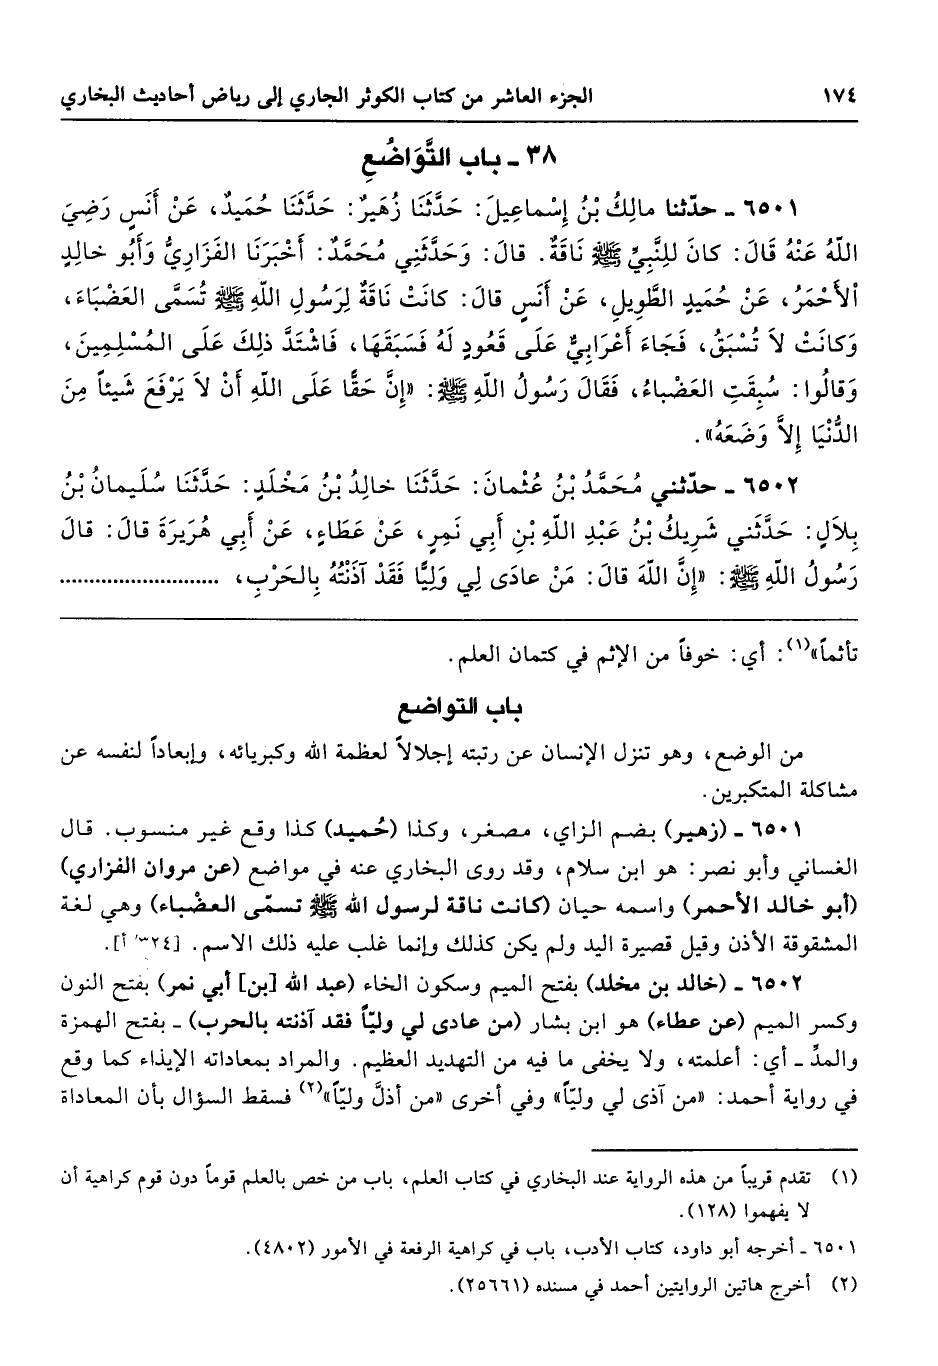 ١٧٤ الجزء العاشر من كتاب الكوثر الجاري إلى رياض أحاديث البخاري
٣٨ ـ باب التَّوَاضُعِ
٦٥٠١ ـ حدّثنا مالِكُ بْنُ إِسْماعِيلَ: حَدَّثَنَا زُهَيرٌ: حَدَّثَنَا حُمَيدٌ، عَنْ أَنَسٍ رَضِيَ
اللّهُ عَنْهُ قَالَ: كانَ لِلنَّبِيِّ ﷺ نَاقَةٌ. قالَ: وَحَدَّثَنِي مُحَمَّدٌ: أَخْبَرَنَا الفَزَارِيُّ وَأَبُو خالِدٍ
الأَحْمَرُ، عَنْ حُمَيدٍ الطَّوِيلِ، عَنْ أَنَسٍ قالَ: كانَتْ نَاقَةٌ لِرَسُولِ اللّهِ ﷺ تُسَمَّى العَضْبَاءَ،
وَكانَتْ لاَ تُسْبَقُ، فَجَاءَ أَعْرَابِيٌّ عَلَى قَعُودٍ لَهُ فَسَبَقَهَا، فَاشْتَدَّ ذلِكَ عَلَى المُسْلِمِينَ،
وَقالُوا: سُبِقَتِ العَضْبَاءُ، فَقَالَ رَسُولُ اللّهِ ﷺ: «إِنَّ حَقًّا عَلَى اللّهِ أَنْ لاَ يَرْفَعَ شَيئاً مِنَ
الدُّنْيَا إِلاَّ وَضَعَهُ».
٦٥٠٢ ـ حدّثني مُحَمَّدُ بْنُ عُثْمانَ: حَدَّثَنَا خالِدُ بْنُ مَخْلَدٍ: حَدَّثَنَا سُلَيمانُ بْنُ
بِلاَلٍ: حَدَّثَني شَرِيكُ بْنُ عَبْدِ اللّهِ بْنِ أَبِي نَمِرٍ، عَنْ عَطَاءٍ، عَنْ أَبِي هُرَيرَةَ قالَ: قالَ
رَسُولُ اللّهِ ﷺ: «إِنَّ اللّهَ قالَ: مَنْ عادَى لِي وَلِيًّا فَقَدْ آذَنْتُهُ بِالحَرْبِ، ...........................
تأثماً»(١): أي: خوفاً من الإثم في كتمان العلم.
باب التواضع
من الوضع، وهو تنزل الإنسان عن رتبته إجلالاً لعظمة الله وكبريائه، وإبعاداً لنفسه عن
مشاكلة المتكبرين.
٦٥٠١ ـ (زهير) بضم الزاي، مصغر، وكذا (حُميد) كذا وقع غير منسوب. قال
الغساني وأبو نصر: هو ابن سلام، وقد روى البخاري عنه في مواضع (عن مروان الفزاري)
(أبو خالد الأحمر) واسمه حيان (كانت ناقة لرسول الله ﷺ تسمّى العضْباء) وهي لغة
المشقوقة الأذن وقيل قصيرة اليد ولم يكن كذلك وإنما غلب عليه ذلك الاسم. [٣٢٤/ أ].
٦٥٠٢ ـ (خالد بن مخلد) بفتح الميم وسكون الخاء (عبد الله [بن] أبي نمر) بفتح النون
وكسر الميم (عن عطاء) هو ابن بشار (من عادى لي وليّاً فقد آذنته بالحرب) ـ بفتح الهمزة
والمدِّ ـ أي: أعلمته، ولا يخفى ما فيه من التهديد العظيم. والمراد بمعاداته الإيذاء كما وقع
في رواية أحمد: «من آذى لي وليّاً» وفي أخرى «من أذلَّ وليّاً»(٢) فسقط السؤال بأن المعاداة
(١) تقدم قريباً من هذه الرواية عند البخاري في كتاب العلم، باب من خص بالعلم قوماً دون قوم كراهية أن
لا يفهموا (١٢٨).
٦٥٠١ ـ أخرجه أبو داود، كتاب الأدب، باب في كراهية الرفعة في الأمور (٤٨٠٢).
(٢) أخرج هاتين الروايتين أحمد في مسنده (٢٥٦٦١).